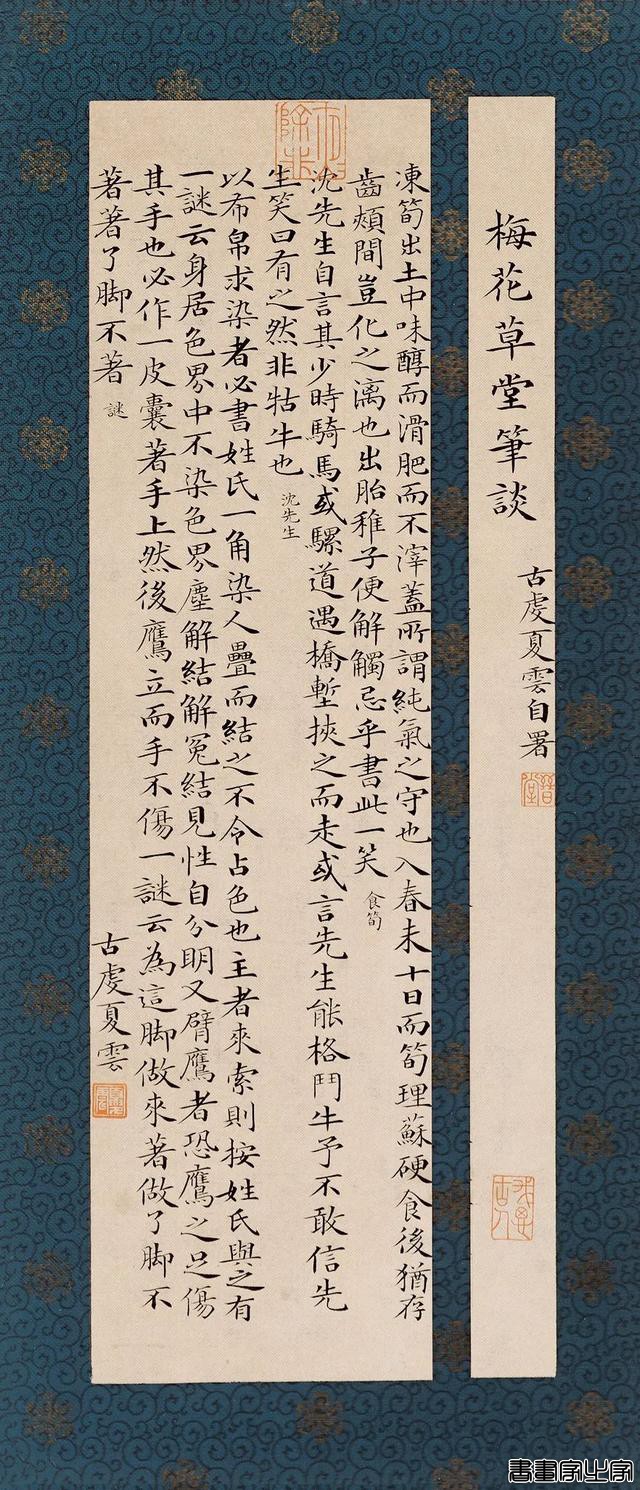 梅花草堂筆談
古虔夏雲自署
凍筍出土中味醇而滑肥而不滓蓋所謂純氣之守也入春未十日而筍理蘇硬食後猶存
齒頰間豈化之漓也出胎稚子便解觸忌乎書此一笑 食筍
沈先生自言其少時騎馬或騾道遇橋塹挾之而走或言先生能格鬥牛予不敢信先
生笑曰有之然非牯牛也 沈先生
以布帛求染者必書姓氏一角染人疊而結之不令占色也主者來索則按姓氏與之有
一謎云身居色界中不染色界塵解結解冤結見性自分明又臂鷹者恐鷹之足傷
其手也必作一皮囊著手上然後鷹立而手不傷一謎云為這脚做來著做了脚不
著著了脚不著 謎
古虔夏雲
書畫家必字